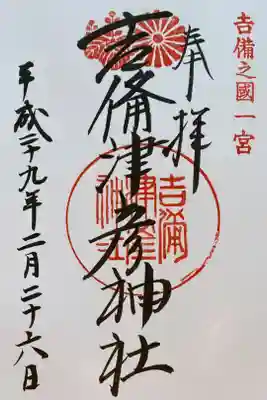 吉備之國一宮
奉拝
吉備津彦神社
吉備
津彦
平成二十九年二月二十六日